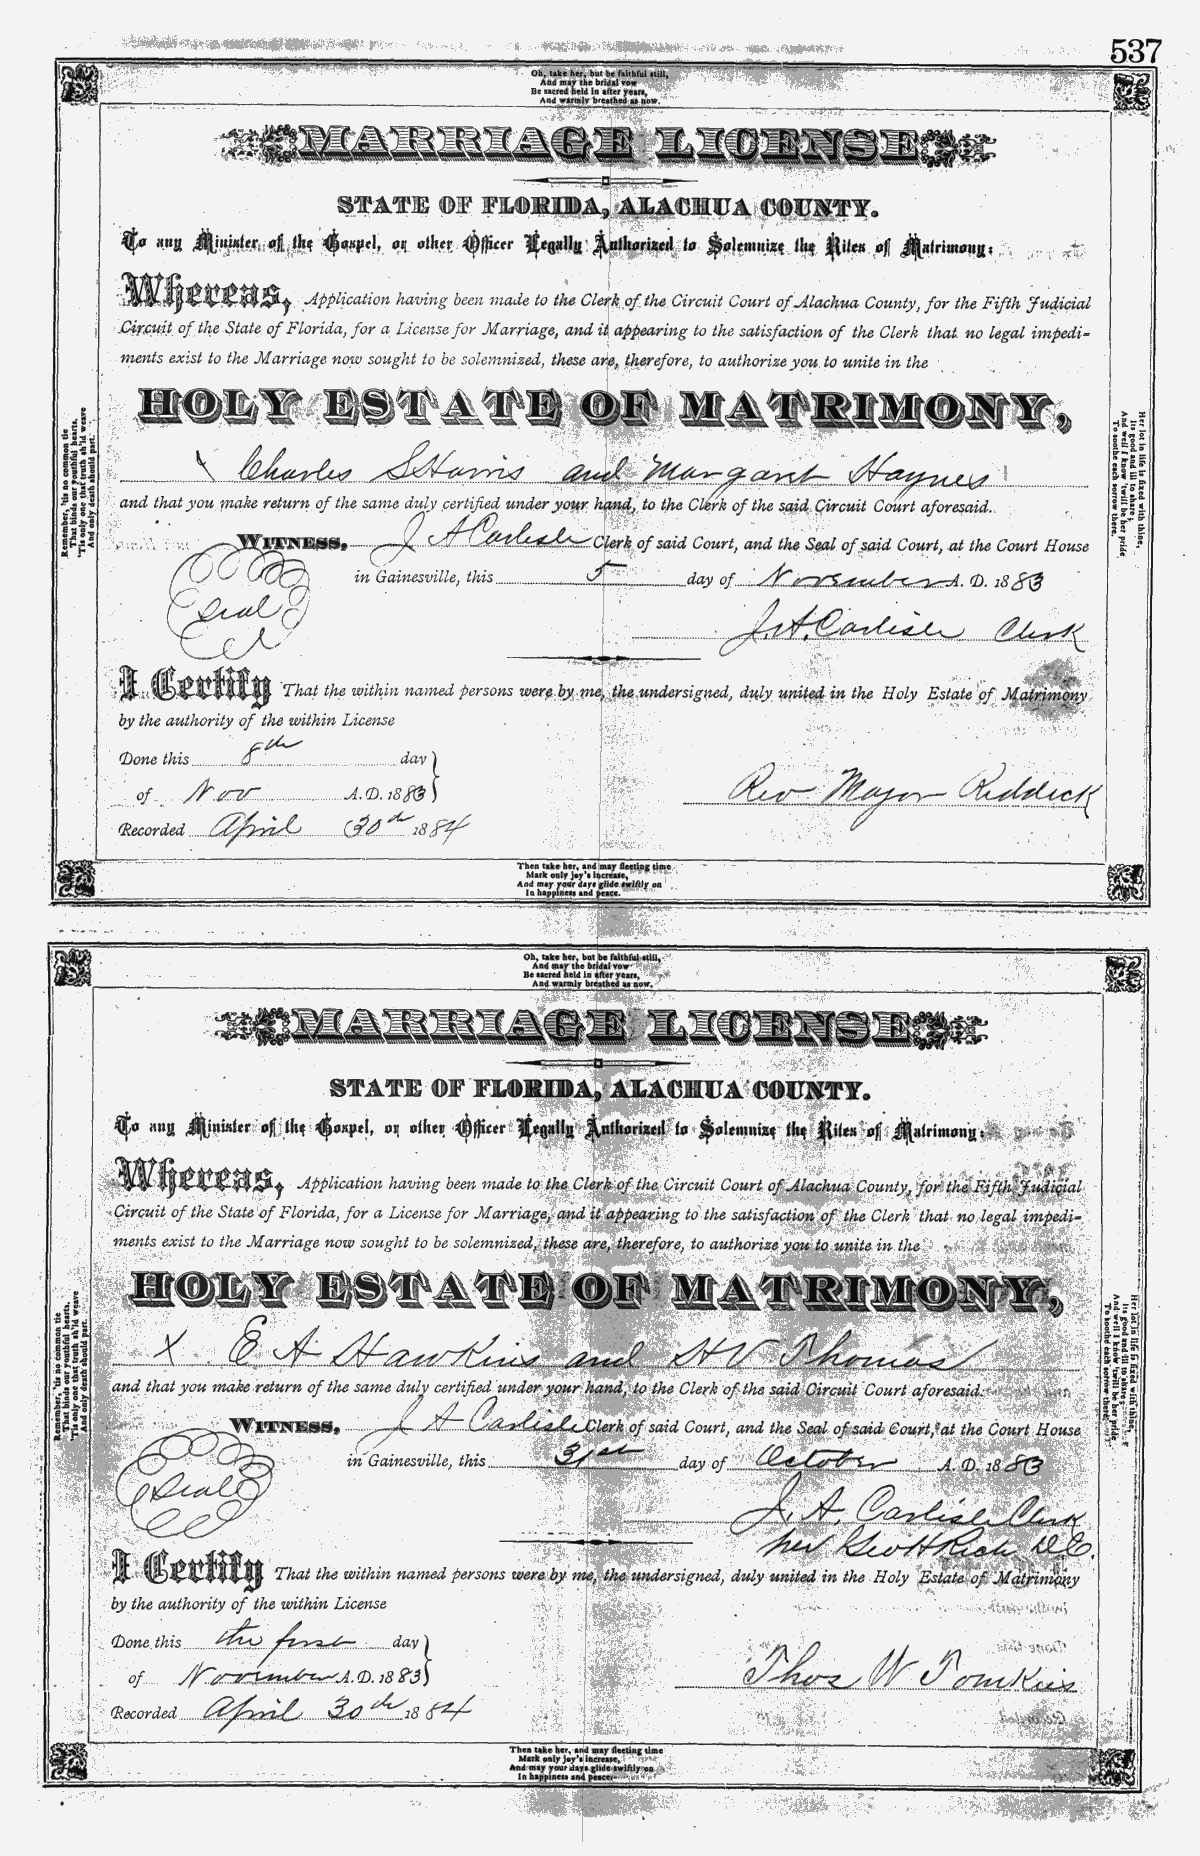 537
Oh, take her, but be faithful still,
And may the bridal vow
Be sacred held in after years,
And warmly breathed as now.
MARRIAGE LICENSE
STATE OF FLORIDA, ALACHUA COUNTY.
To any Minister of the Gospel, or other Officer Legally Authorized to Solemnize the Rites of Matrimony:
Whereas, Application having been made to the Clerk of the Circuit Court of Alachua County, for the Fifth Judicial
Circuit of the State of Florida, for a License for Marriage, and it appearing to the satisfaction of the Clerk that no legal impedi-
ments exist to the Marriage now sought to be solemnized, these are, therefore, to authorize you to unite in the
HOLY ESTATE OF MATRIMONY,
Charles S Harris and Margaret Haynes
and that you make return of the same duly certified under your hand, to the Clerk of the said Circuit Court aforesaid.
WITNESS, J A Carlisle Clerk of said Court, and the Seal of said Court, at the Court House
in Gainesville, this 5 day of November A. D. 1883
Seal
J. A. Carlisle Clerk
I Certify That the within named persons were by me, the undersigned, duly united in the Holy Estate of Matrimony
by the authority of the within License
Done this 8th day
of Nov A.D. 1883
Rev Major Reddick
Recorded April 30th 1884
Remember, 'tis no common tie
That binds our youthful hearts,
'Tis only one that truth sh'ld weave
And only death should part.
Her lot in life is fixed with thine,
Its good and ill to share;
And well I know 'twill be her pride
To soothe each sorrow there.
Then take her, and may fleeting time
Mark only joy's increase,
And may your days glide swiftly on
In happiness and peace.
Oh, take her, but be faithful still,
And may the bridal vow
Be sacred held in after years,
And warmly breathed as now.
MARRIAGE LICENSE
STATE OF FLORIDA, ALACHUA COUNTY.
To any Minister of the Gospel, or other Officer Legally Authorized to Solemnize the Rites of Matrimony:
Whereas, Application having been made to the Clerk of the Circuit Court of Alachua County, for the Fifth Judicial
Circuit of the State of Florida, for a License for Marriage, and it appearing to the satisfaction of the Clerk that no legal impedi-
ments exist to the Marriage now sought to be solemnized, these are, therefore, to authorize you to unite in the
HOLY ESTATE OF MATRIMONY,
X E A Hawkins and H V Thomas
and that you make return of the same duly certified under your hand, to the Clerk of the said Circuit Court aforesaid.
WITNESS, J A Carlisle Clerk of said Court, and the Seal of said Court, at the Court House
in Gainesville, this 31st day of October A. D. 1883
Seal
J. A. Carlisle Clerk
per Geo H Rich D.C.
I Certify That the within named persons were by me, the undersigned, duly united in the Holy Estate of Matrimony
by the authority of the within License
Done this the first day
of November A.D. 1883
Thos W Tomkies
Recorded April 30th 1884
Remember, 'tis no common tie
That binds our youthful hearts,
'Tis only one that truth sh'ld weave
And only death should part.
Her lot in life is fixed with thine,
Its good and ill to share;
And well I know 'twill be her pride
To soothe each sorrow there.
Then take her, and may fleeting time
Mark only joy's increase,
And may your days glide swiftly on
In happiness and peace.